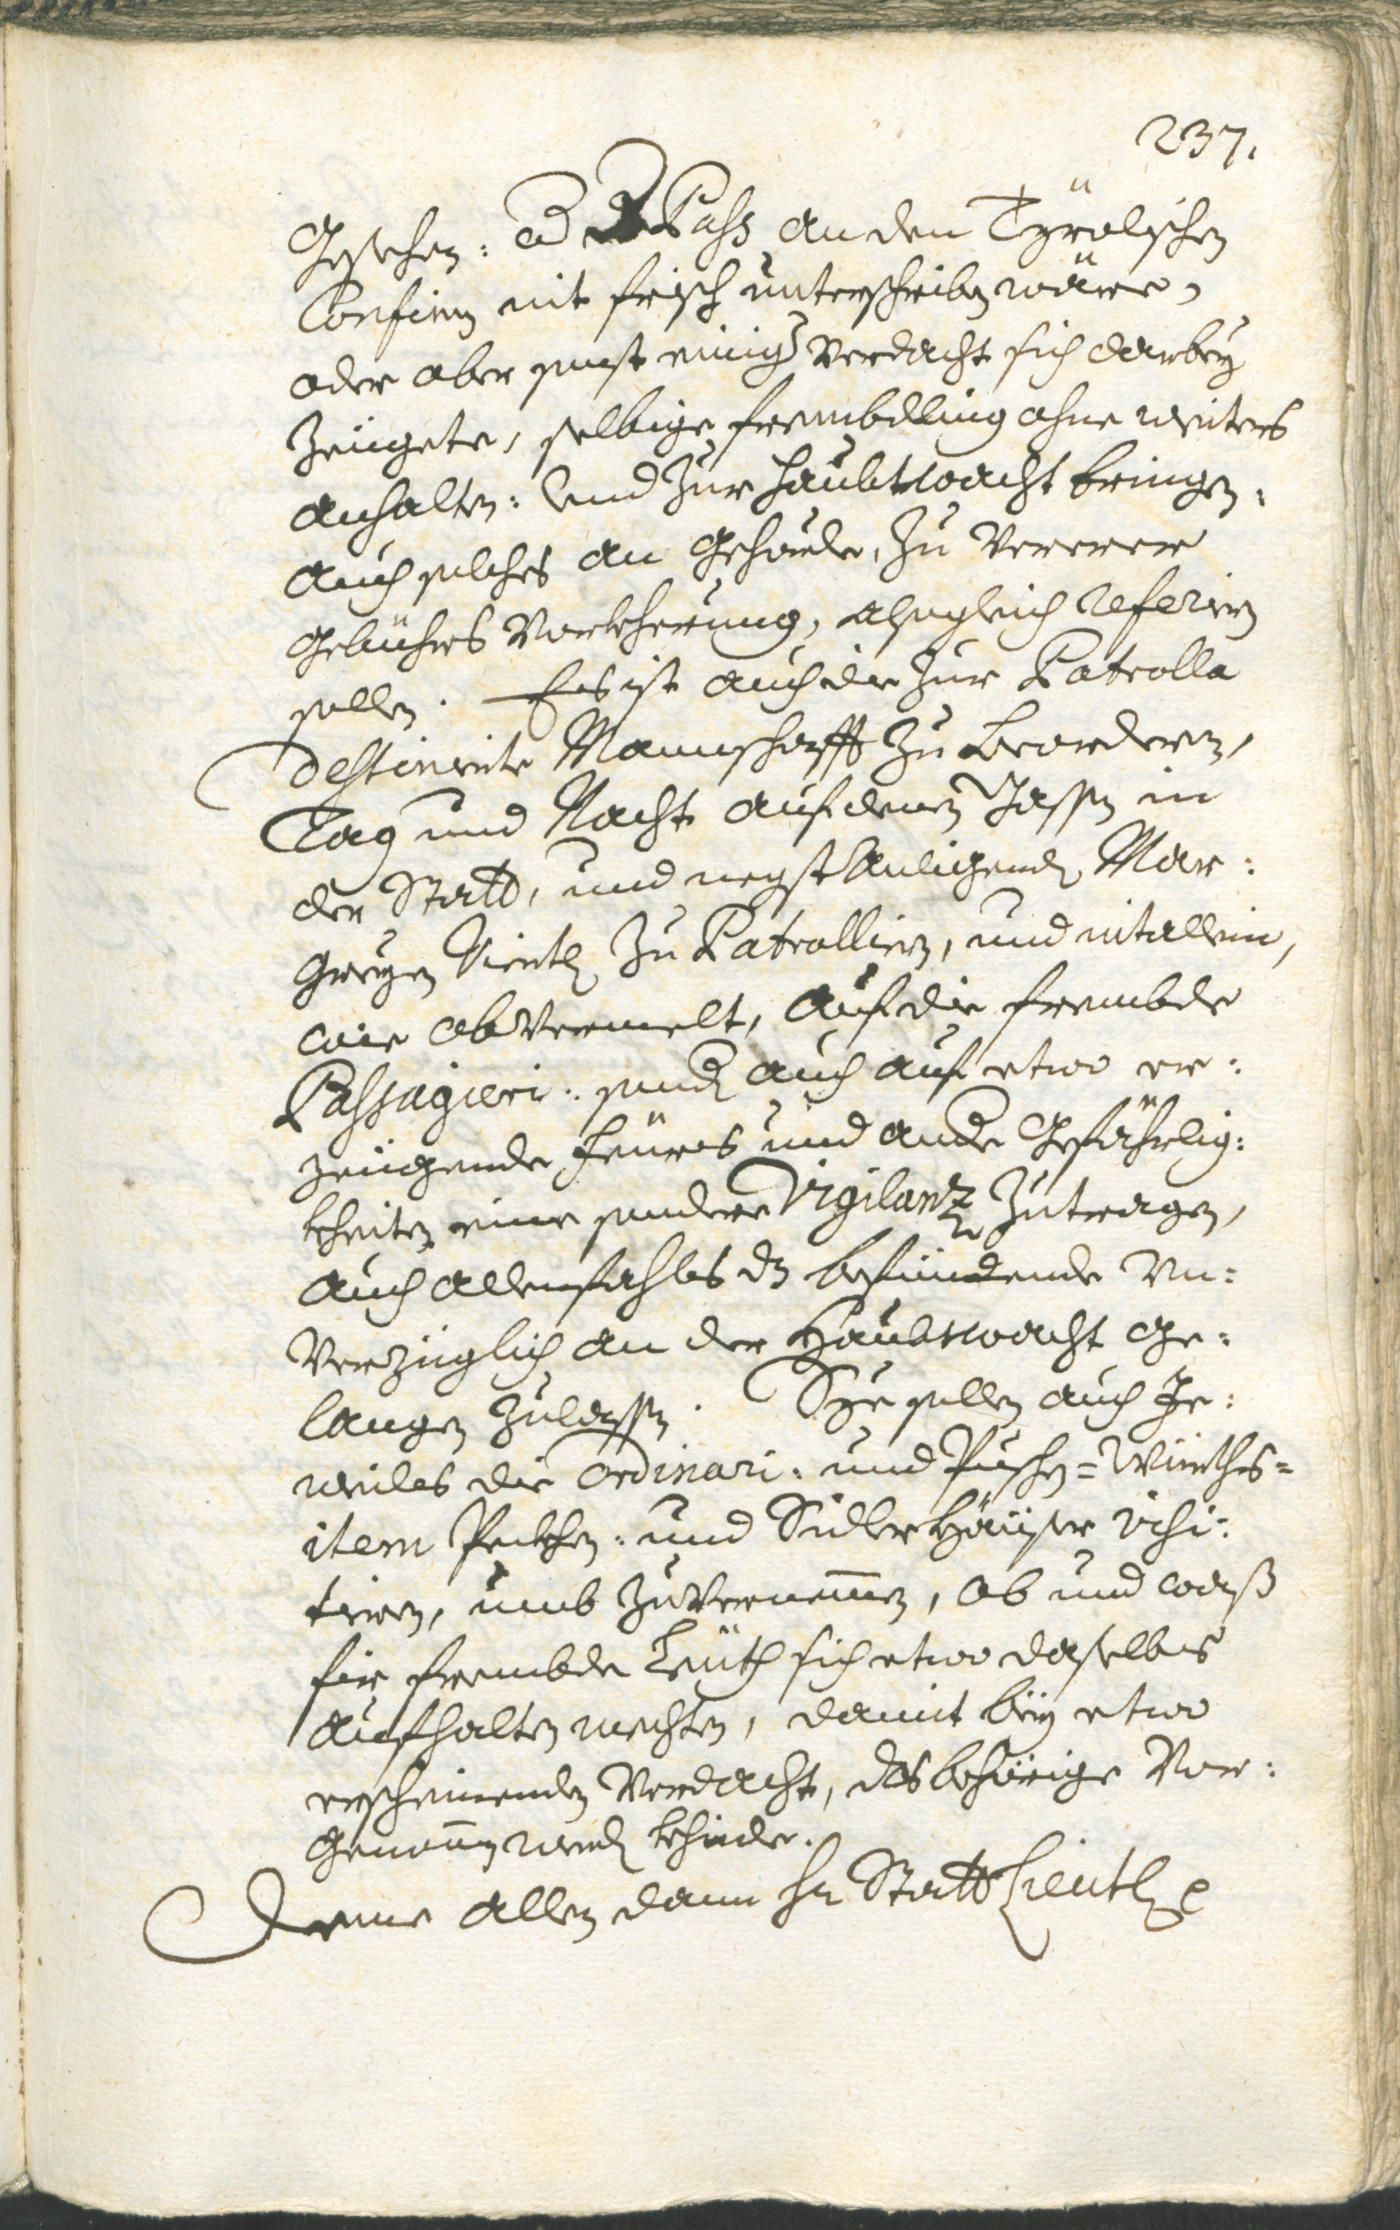 237.
Gesechen: od der Pass an den Tÿrolischen
Confinen nit frisch unterschriben wäre,
oder aber sunst einiger Verdacht sich darbeÿ
zeügete, selbige frembdling ohne weiters
anhalten: und zur Haubtwacht bringen:
auch solches an Gehörde, zu Vererer
Gebührs Vorkherung, alsogleich referirn
sollen. Es ist auch die zur Patrolla
destinirte Mannschafft zu beorderen,
Tag und Nacht auf denen Gassen in
der Statt, und negst anligenden Mar:
greyen Viertl zu Patrollirn, und nit allein,
wie obvermelt, auf die frembde
Passagieri: sond auch auf etwo er:
zeügende Feürs und andere Gefährlig:
kheiten eine sondere Vigilanz zutragen,
auch allenfahls dz befündende un:
Verzüglich an der Haubtwacht ge:
langen zulassen. Sye sollen auch Je:
weiles die Ordinari: und Puschen= Würths=
item Pekhen: und Sidler Häüser visi:
tiren, umb zuvernemmen, ob und waß
für frembde Leüth sich etwo daselbes
aufhalten mechten, damit beÿ etwo
erscheinenden Verdacht, das behörige Vor:
genommen werden khinde.
Deme allen dann Hr Statt Lieutl